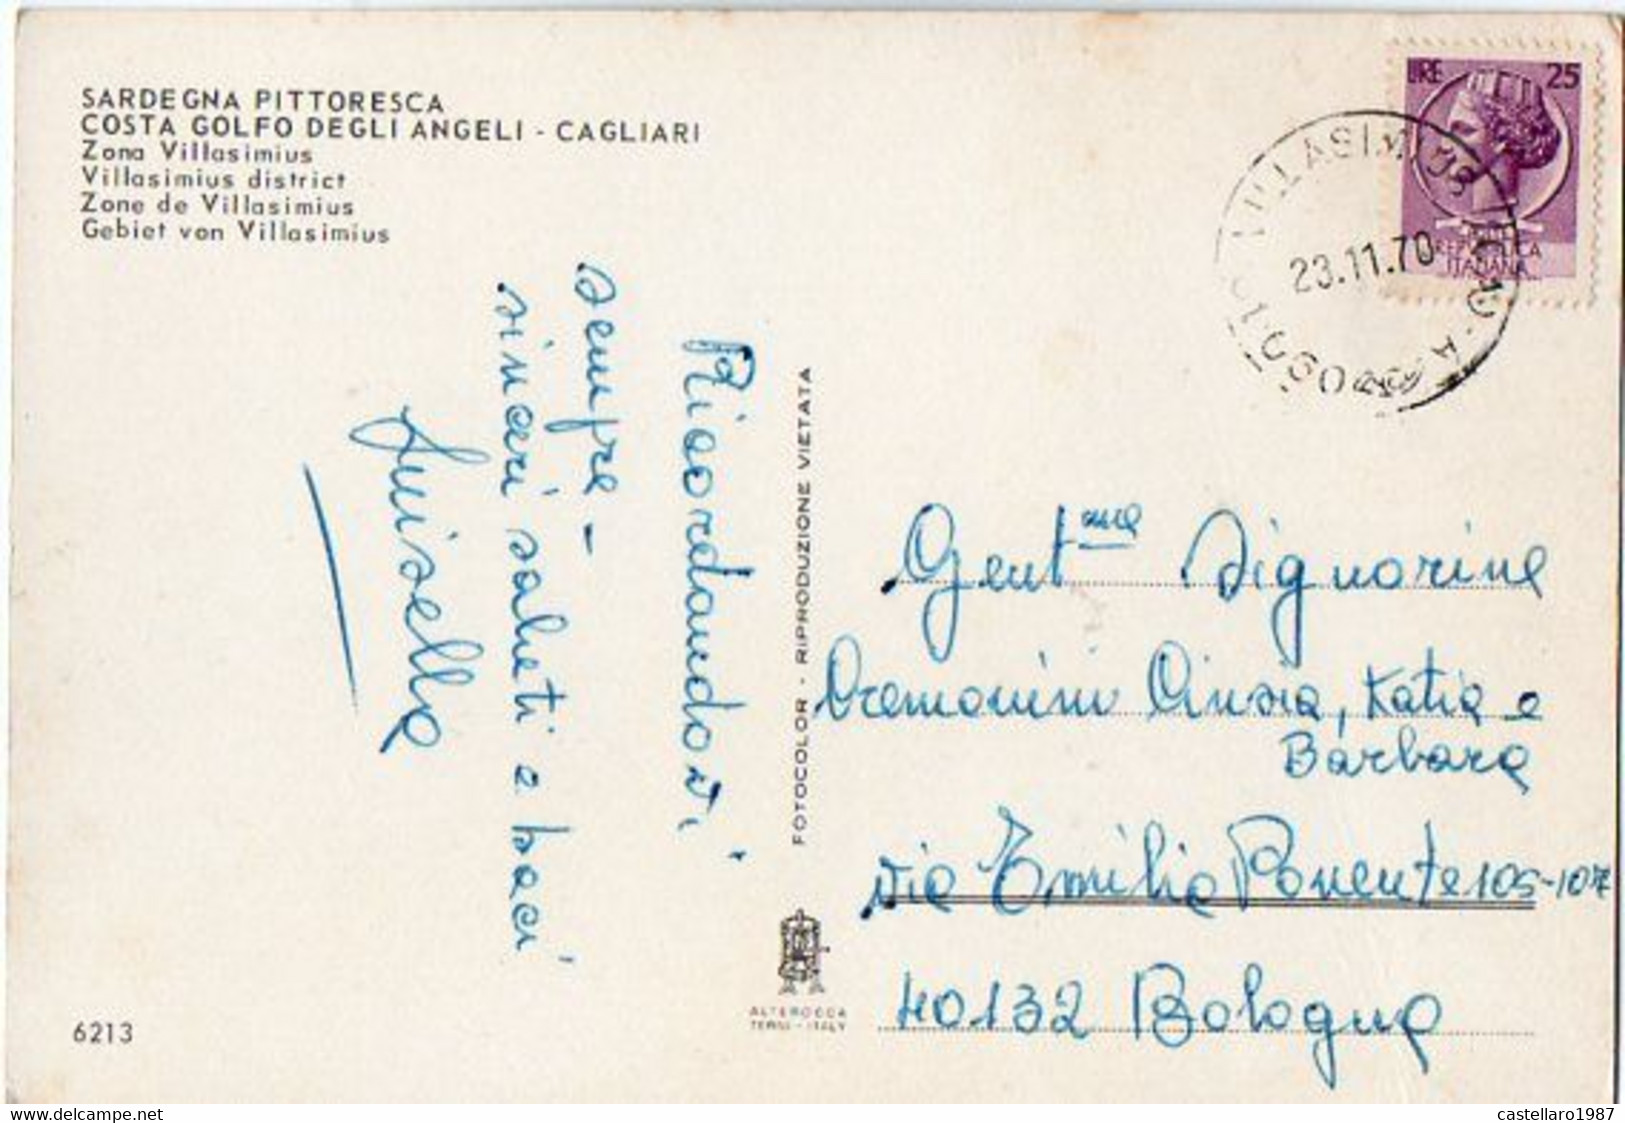 SARDEGNA PITTORESCA
COSTA GOLFO DEGLI ANGELI - CAGLIARI
Zona Villasimius
Villasimius district
Zone de Villasimius
Gebiet von Villasimius
Ricordandovi
sempre -
sinceri saluti e baci
Luisella
FOTOCOLOR - RIPRODUZIONE VIETATA
ALTEROCCA
TERNI - ITALY
6213
LIRE 25
REPUBBLICA
ITALIANA
VILLASIMIUS
23.11.70
Gent.me Signorine
Cremonini Cinzia, Katia e
Barbara
via Emilia Ponente 105-107
40132 Bologna
castellaro1987